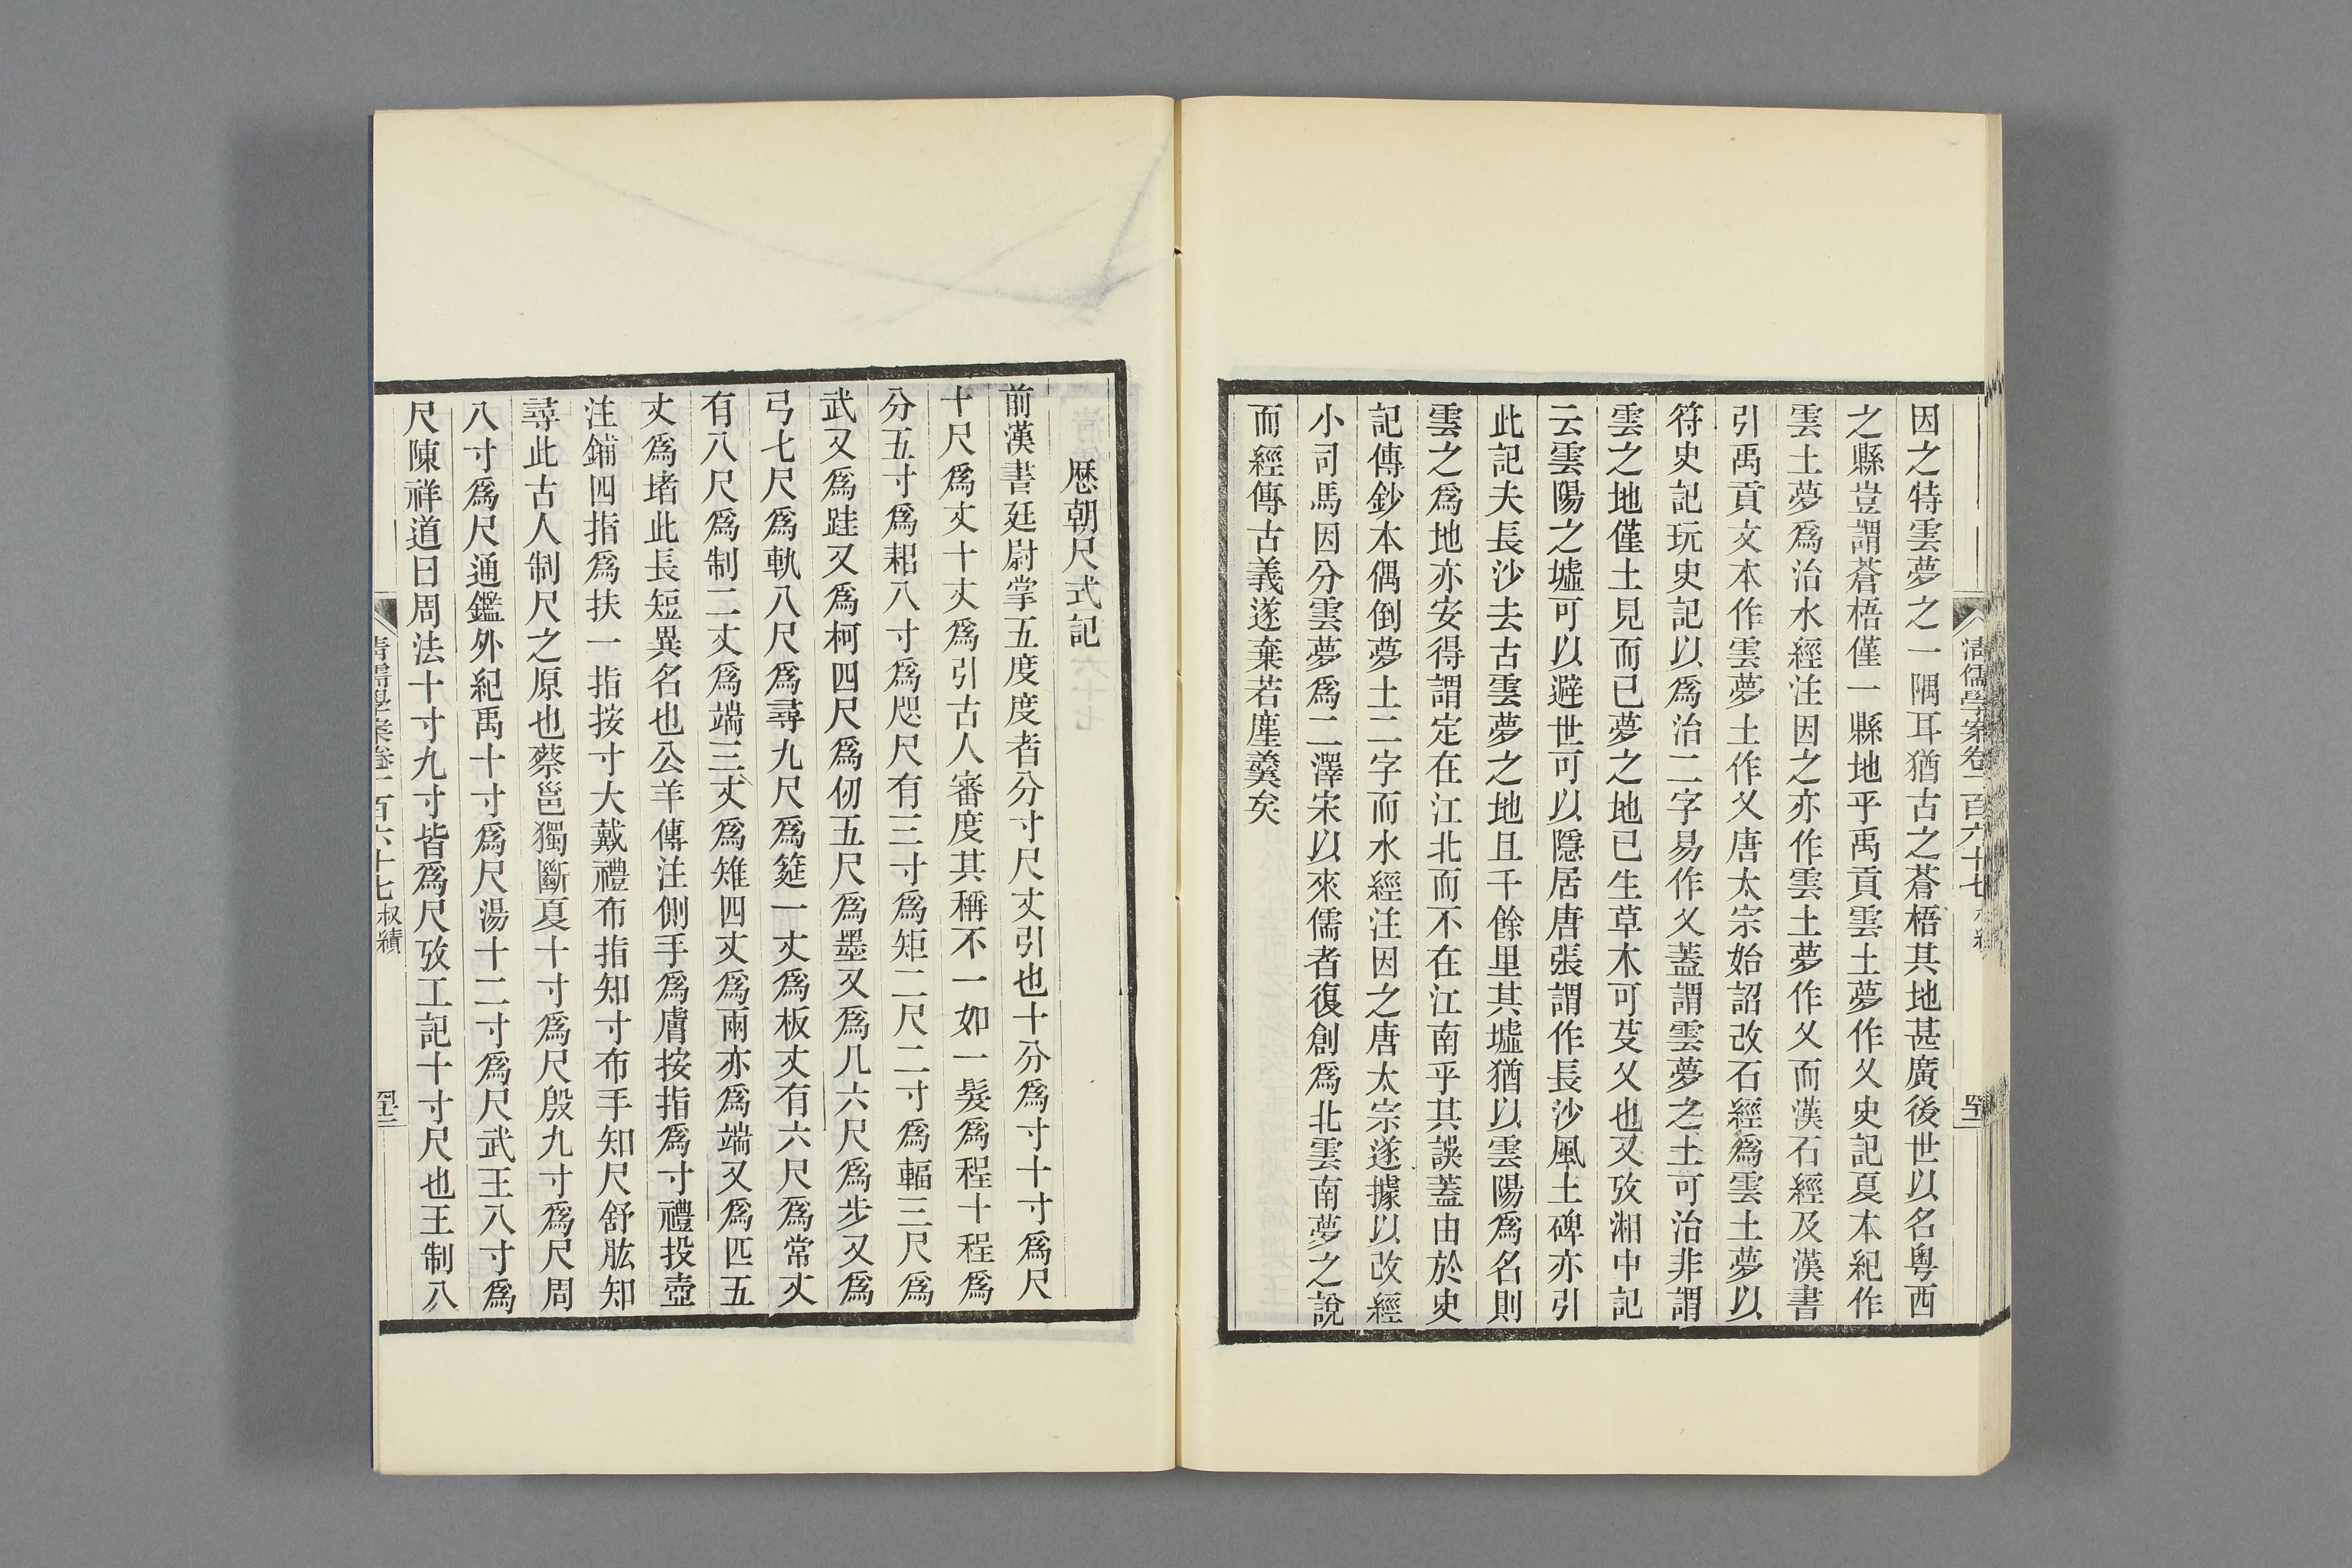 因之特雲夢之一隅耳猶古之蒼梧其地甚廣後世以名粵西
之縣豈謂蒼梧僅一縣地乎禹貢雲土夢作乂史記夏本紀作
雲土夢爲治水經注因之亦作雲土夢作乂而漢石經及漢書
引禹貢文本作雲夢土作乂唐太宗始詔改石經爲雲土夢以
符史記玩史記以爲治二字易作乂蓋謂雲夢之土可治非謂
雲之地僅土見而已夢之地已生草木可芟乂也又攷湘中記
云雲陽之墟可以避世可以隱居唐張謂作長沙風土碑亦引
此記夫長沙去古雲夢之地且千餘里其墟猶以雲陽爲名則
雲之爲地亦安得謂定在江北而不在江南乎其誤蓋由於史
記傳鈔本偶倒夢土二字而水經注因之唐太宗遂據以改經
小司馬因分雲夢爲二澤宋以來儒者復創爲北雲南夢之說
而經傳古義遂棄若塵羹矣
清儒學案卷一百六十七
歷朝尺式記
前漢書廷尉掌五度度者分寸尺丈引也十分爲寸十寸爲尺
十尺爲丈十丈爲引古人審度其稱不一如一髮爲程十程爲
分五寸爲耜八寸爲咫尺有三寸爲矩二尺二寸爲輻三尺爲
武又爲跬又爲柯四尺爲仞五尺爲墨又爲几六尺爲步又爲
弓七尺爲軌八尺爲尋九尺爲筵一丈爲板丈有六尺爲常丈
有八尺爲制二丈爲端三丈爲雉四丈爲兩亦爲端又爲匹五
丈爲堵此長短異名也公羊傳注側手爲膚按指爲寸禮投壺
注鋪四指爲扶一指按寸大戴禮布指知寸布手知尺舒肱知
尋此古人制尺之原也蔡邕獨斷夏十寸爲尺殷九寸爲尺周
八寸爲尺通鑑外紀禹十寸爲尺湯十二寸爲尺武王八寸爲
尺陳祥道曰周法十寸九寸皆爲尺攷工記十寸尺也王制八
清儒學案卷一百六十七 叔績